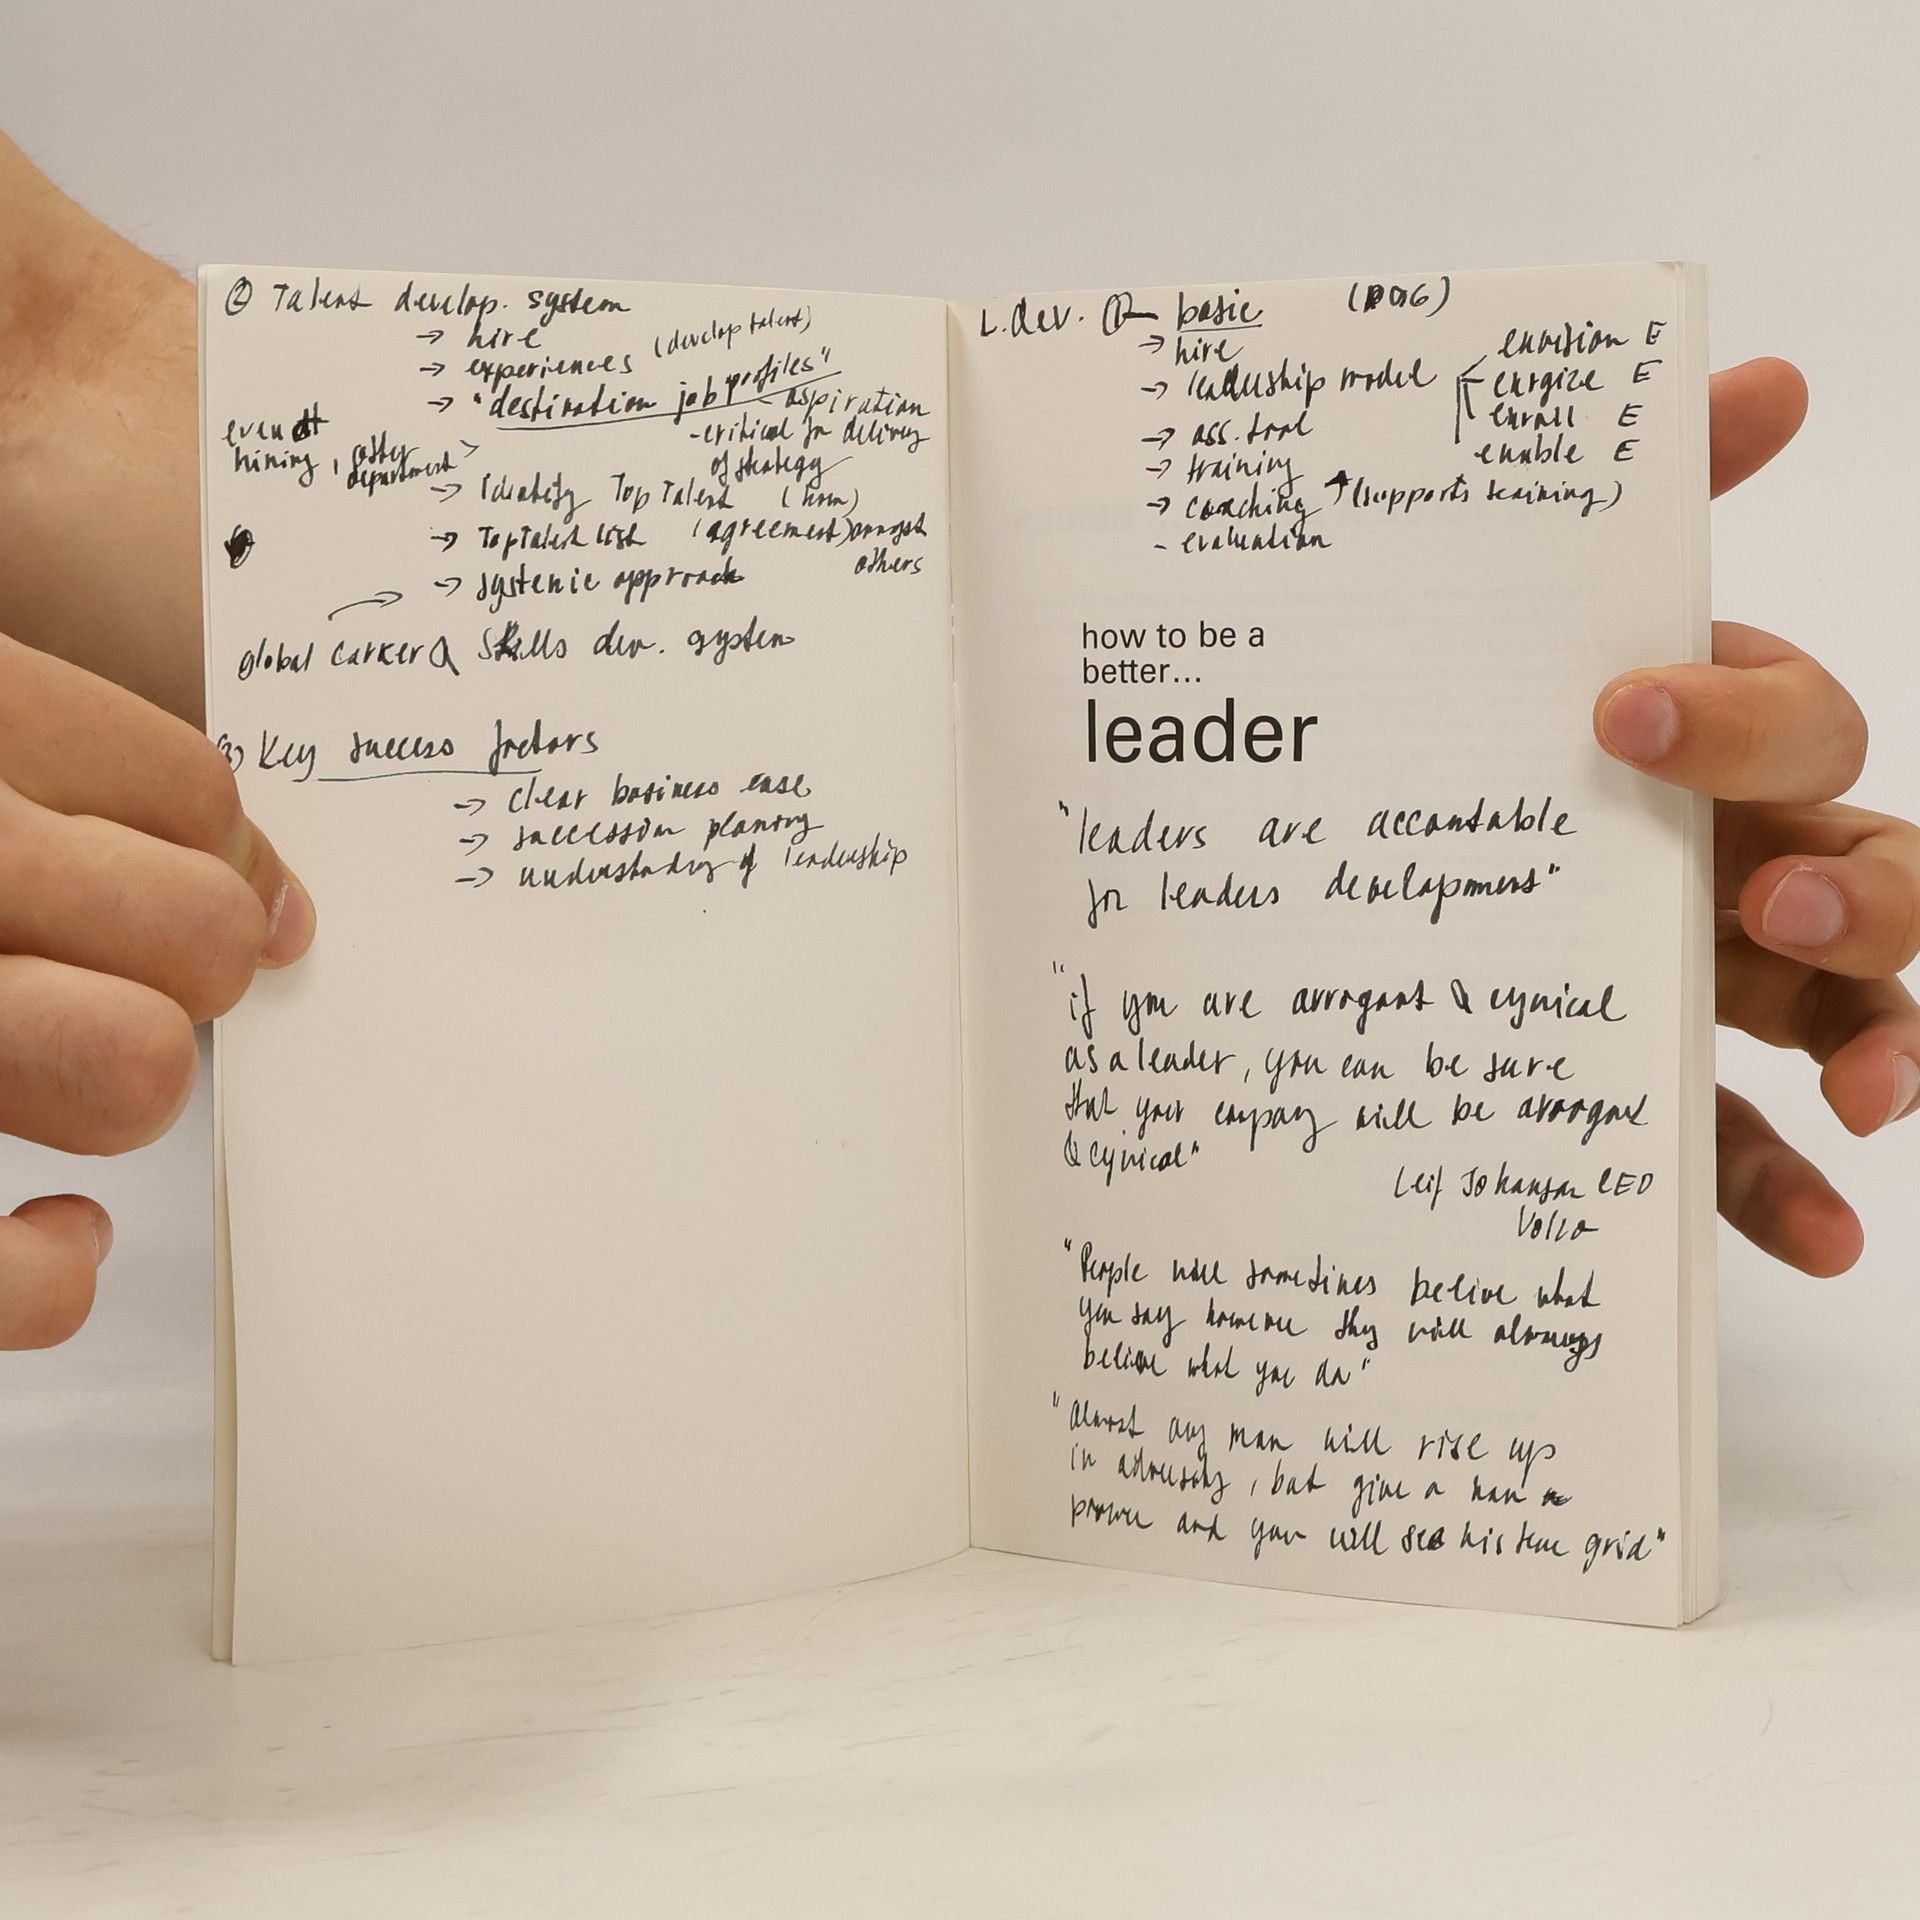 ② Talent develop. system
→ hire
→ experiences (develop talent)
→ "destination job profiles"
- aspiration
- critical for delivery
of strategy
even at
hiring, other
department
→ Identify Top Talent
→ TopTalent list (agreement) amongst
others
→ systemic approach
global career & Skills dev. system
Key success factors
→ clear business case
→ succession planing
→ understanding of leadership
L. dev. ① basic
→ hire
→ leadership model
envision E
energize E
enroll E
enable E
→ ass. tool
→ training
→ coaching (supports training)
- evaluation
how to be a
better...
leader
"leaders are accountable
for leaders development"
"if you are arrogant & cynical
as a leader, you can be sure
that your company will be arrogant
& cynical"
Leif Johanson CEO
Volvo
"People will sometimes belive what
you say however they will always
belive what you do"
"Almost any man will rise up
in adversity, but give a man
power and you will see his true grid"